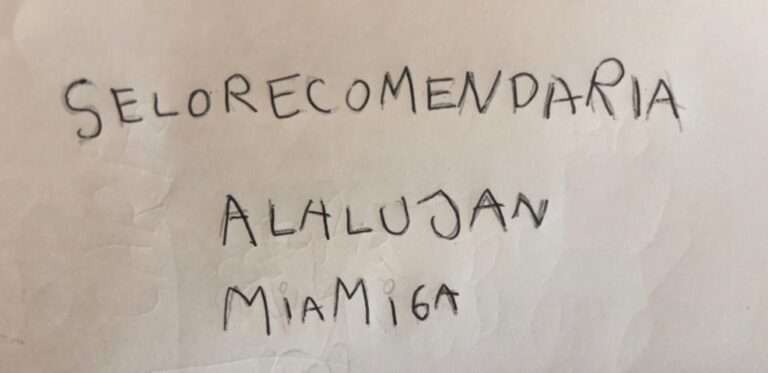 SELORECOMENDARIA
ALALUJAN
MiAMiGA